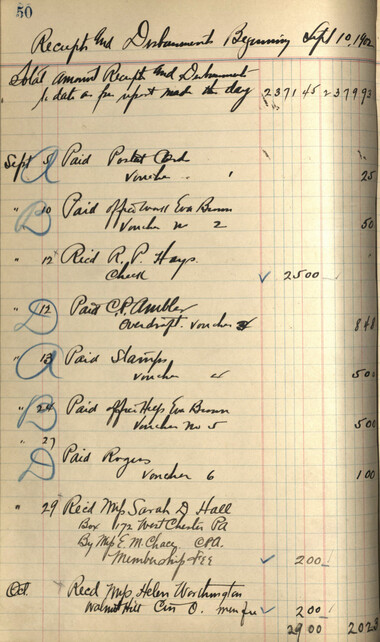 50
Receipts and Disbursements Beginning Sept 10, 1902
Total amount Receipts and Disbursements
to date as per report made this day 2371 45 2379 93
Sept 5 A Paid Postal Card
Voucher 1 25
" 10 B Paid office work Eva Brown
Voucher no 2 50
" 12 Recd R. P. Hays
Check ✓ 25 00
" 12 D Paid C. P. Ambler
overdraft. voucher 8 48
" 13 A Paid Stamps
voucher 5 00
" 24 B Paid office Help Eva Brown
Voucher No 5 5 00
" 27
D Paid Rogers
Voucher 6 1 00
" 29 Recd Miss Sarah D Hall
Box 172 West Chester Pa
By Miss E. M. Chace
Membership Fee ✓ 2 00
Oct. Recd Miss Helen Worthington
Walnut Hill Cin O. mem fee ✓ 2 00
29 00 20 23